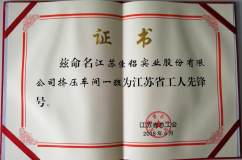 证书
兹命名江苏佳铝实业股份有限
公司挤压车间一班为江苏省工人先锋
号。
江苏省总工会